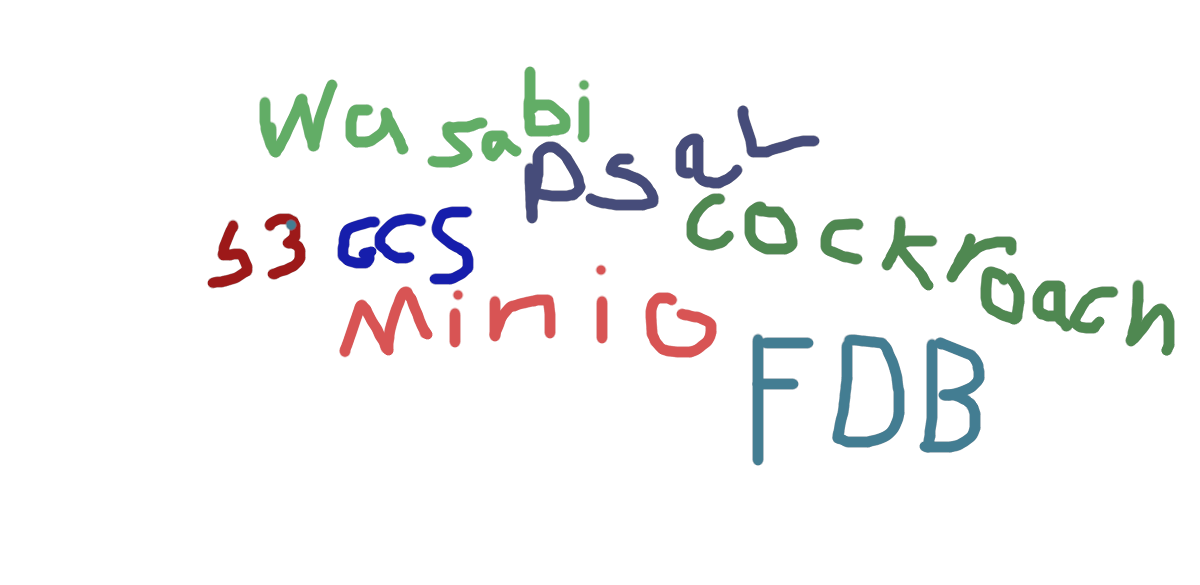 Wasabi
PSQL
S3 GCS
cockroach
Minio
FDB